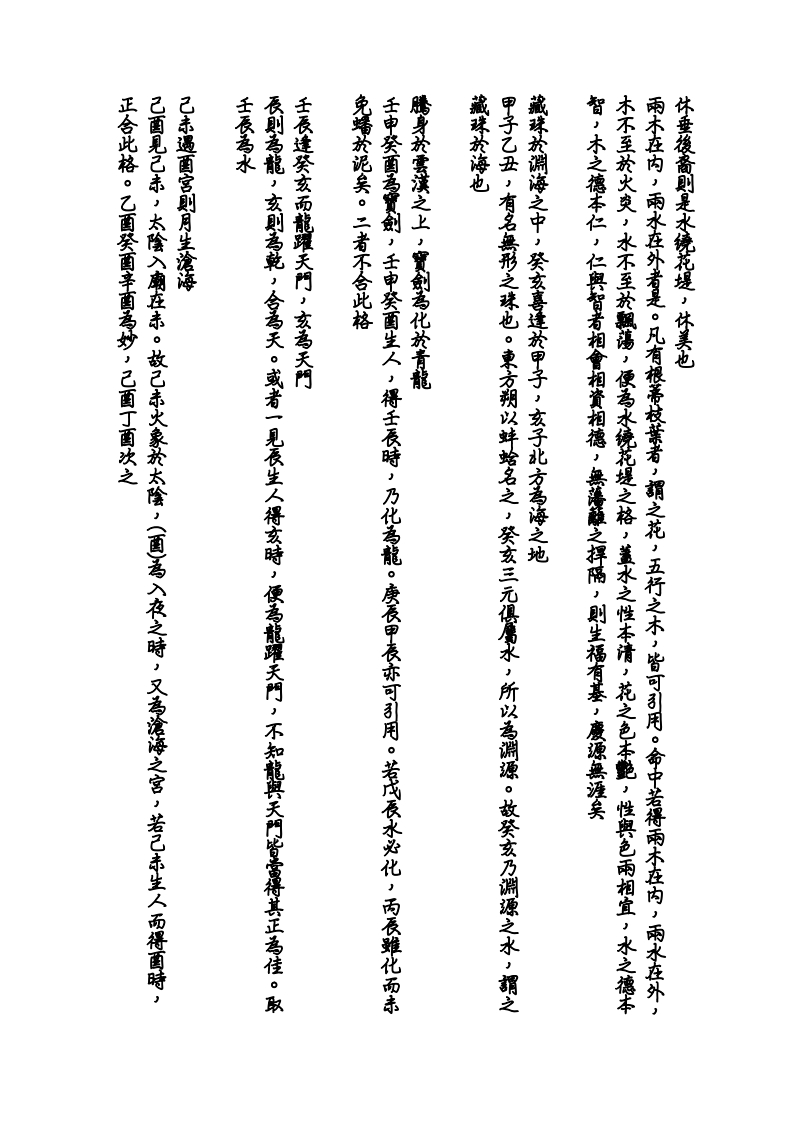 休垂後裔則是水繞花堤，休美也
兩木在內，兩水在外者是。凡有根蒂枝葉者，謂之花，五行之木，皆可引用。命中若得兩木在內，兩水在外，
木不至於火炎，水不至於飄蕩，便為水繞花堤之格，蓋水之性本清，花之色本艷，性與色兩相宜，水之德本
智，木之德本仁，仁與智者相會相資相德，無蕩離之捍隔，則生福有基，慶源無涯矣
藏珠於淵海之中，癸亥喜逢於甲子，亥子北方為海之地
甲子乙丑，有名無形之珠也。東方朔以蚌蛤名之，癸亥三元俱屬水，所以為淵源。故癸亥乃淵源之水，謂之
藏珠於海也
騰身於雲漢之上，寶劍為化於青龍
壬申癸酉為寶劍，壬申癸酉生人，得壬辰時，乃化為龍。庚辰甲辰亦可引用。若戊辰水必化，丙辰雖化而未
免蟠於泥矣。二者不合此格
壬辰逢癸亥而龍躍天門，亥為天門
辰則為龍，亥則為乾，合為天。或者一見辰生人得亥時，便為龍躍天門，不知龍與天門皆當得其正為佳。取
壬辰為水
己未遇酉宮則月生滄海
己酉見己未，太陰入廟在未。故己未火象於太陰，(酉)為入夜之時，又為滄海之宮，若己未生人而得酉時，
正合此格。乙酉癸酉辛酉為妙，己酉丁酉次之